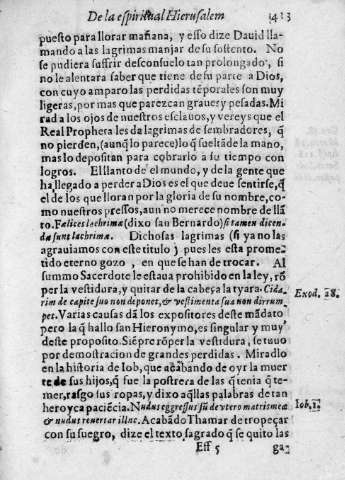 De la espiritual Hierusalem 1413
puesto para llorar mañana, y esso dize Dauid lla-
mando a las lagrimas manjar de su sostento. No
se pudiera sufrir desconsuelo tan prolongado, si
no le alentara saber que tiene de su parte a Dios,
con cuyo amparo las perdidas tẽporales son muy
ligeras, por mas que parezcan graues y pesadas. Mi
rad a los ojos de nuestros esclauos, y vereys que el
Real Propheta les da lagrimas de sembradores, q̃
no pierden, (aunq̃ lo parece) lo q̃ sueltã de la mano,
mas lo depositan para cobrarlo a su tiempo con
logros. El llanto de el mundo, y de la gente que
ha llegado a perder a Dios es el que deue sentirse, q̃
el de los que lloran por la gloria de su nombre, co-
mo nuestros pressos, aun no merece nombre de llã
to. Fælices lachrimæ (dixo san Bernardo) si tamen dicen-
dæ sunt lachrimæ. Dichosas lagrimas (si ya no las
agrauiamos con este titulo) pues les esta prome-
tido eterno gozo, en que se han de trocar. Al
summo Sacerdote le estaua prohibido en la ley, rõ
per la vestidura, y quitar de la cabeça la tyara. Cida-
rim de capite suo non deponet, & vestimenta sua non dirrum-
pet. Varias causas dã los expositores deste mãdato
pero la q̃ hallo san Hieronymo, es singular y muy
deste proposito. Siẽpre rõper la vestidura, se tuuo
por demostracion de grandes perdidas. Miradlo
en la historia de Iob, que acabando de oyr la muer
te de sus hijos, q̃ fue la postrera de las q̃ tenia q̃ te-
mer, rasgo sus ropas, y dixo aq̃llas palabras de tan
heroyca paciẽcia. Nudus egressus sũ de vtero matris meæ
& nudus reuertar illuc. Acabãdo Thamar de tropeçar
con su suegro, dize el texto sagrado q̃ se quito las
Exod. 28.
Iob. 1.
Fff 5 ga-